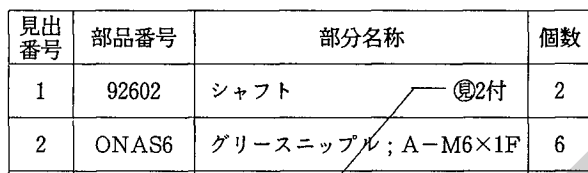 見出番号 部品番号 部分名称 個数
1 92602 シャフト ㊞2付 2
2 ONAS6 グリースニップル；A−M6×1F 6